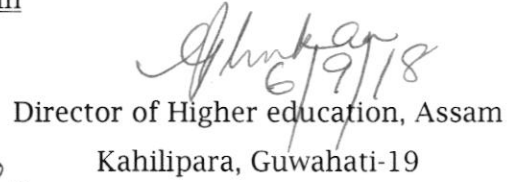 6/9/18
Director of Higher education, Assam
Kahilipara, Guwahati-19